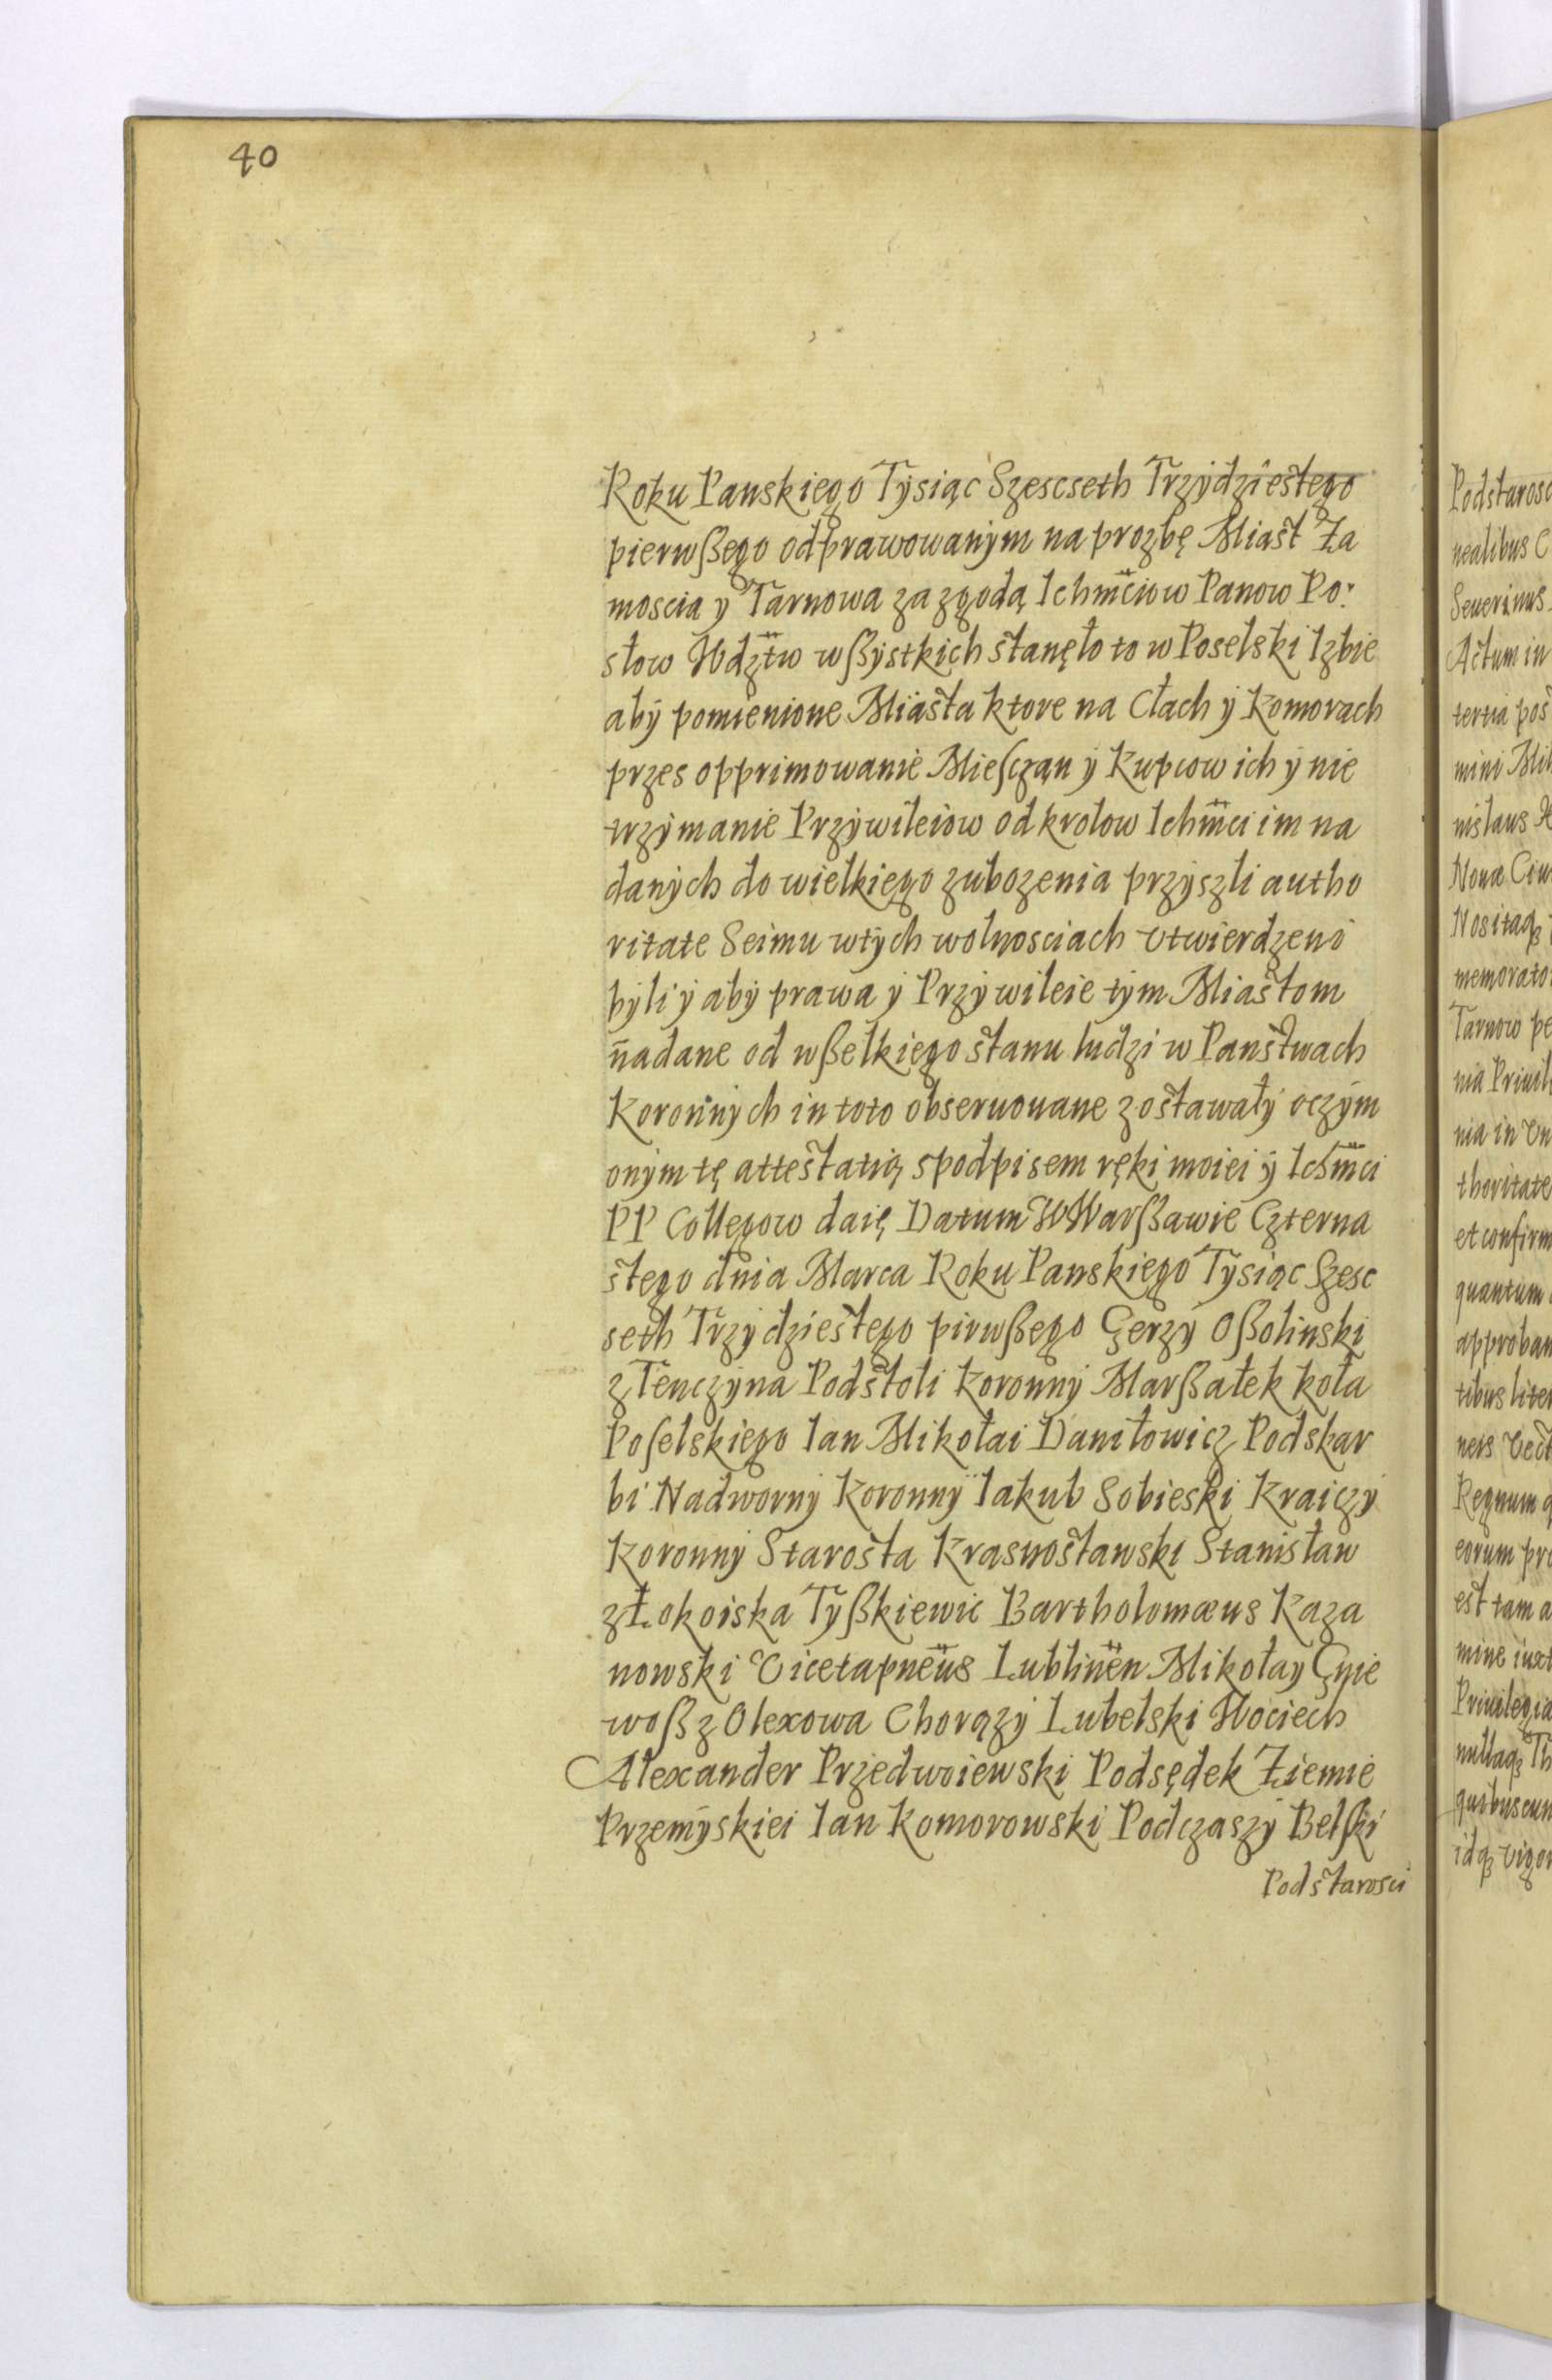 40
Roku Panskiego Tysiąc Szescseth Trzydziestego
pierwßego odprawowanym na prozbę Miast Za
moscia y Tarnowa za zgodą Ichm̃ciow Panow Po:
słow Wdztw wßystkich stanęło to w Poselski Izbie
aby pomienione Miasta ktore na Cłach y Komorach
przes opprimowanie Miesczan y Kupcow ich y nie
trzymanie Przywileiow od krolow Ichm̃ci im na
danych do wielkiego zubozenia przyszli autho
ritate Seimu w tych wolnosciach utwierdzeni
byli y aby prawa y Przywileie tym Miastom
nadane od wßelkiego stanu ludzi w Panstwach
Koronnych in toto obseruouane zostawały oczym
onym tę attestatią s podpisem ręki moiei y Ichm̃ci
PP Collegow daię Datum W Warßawie Czterna
stego dnia Marca Roku Panskiego Tysiąc Szesc
seth Trzydziestego pirwßego Gerzy Oßolinski
z Tenczyna Podstoli Koronny Marßałek koła
Poselskiego Ian Mikołai Daniłowicz Podskar
bi Nadworny Koronny Iakub Sobieski Kraiczy
Koronny Starosta Krasnostawski Stanisław
z Łokoiska Tyßkiewic Bartholomæus Kaza
nowski Vicetapneus Lublinen Mikołay Gnie
woß z Olexowa Chorązy Lubelski Wociech
Alexander Przedwoiewski Podsędek Ziemie
Przemyskiei Ian Komorowski Podczaszy Belski
Podstarosci
Podstarosc
nealibus C
Seuerinus
Actum in
tertia post
mini Mil
nislaus
Noua Ciu
Nos itaq
memorato
Tarnow pe
nia Priuil
nia in
thoritate
et confirm
quantum
approban
tibus liter
ners Vect
Regnum
eorum pro
est tam a
mine iuxt
Priuilegia
nullaq Th
quibuscun
idq vigor